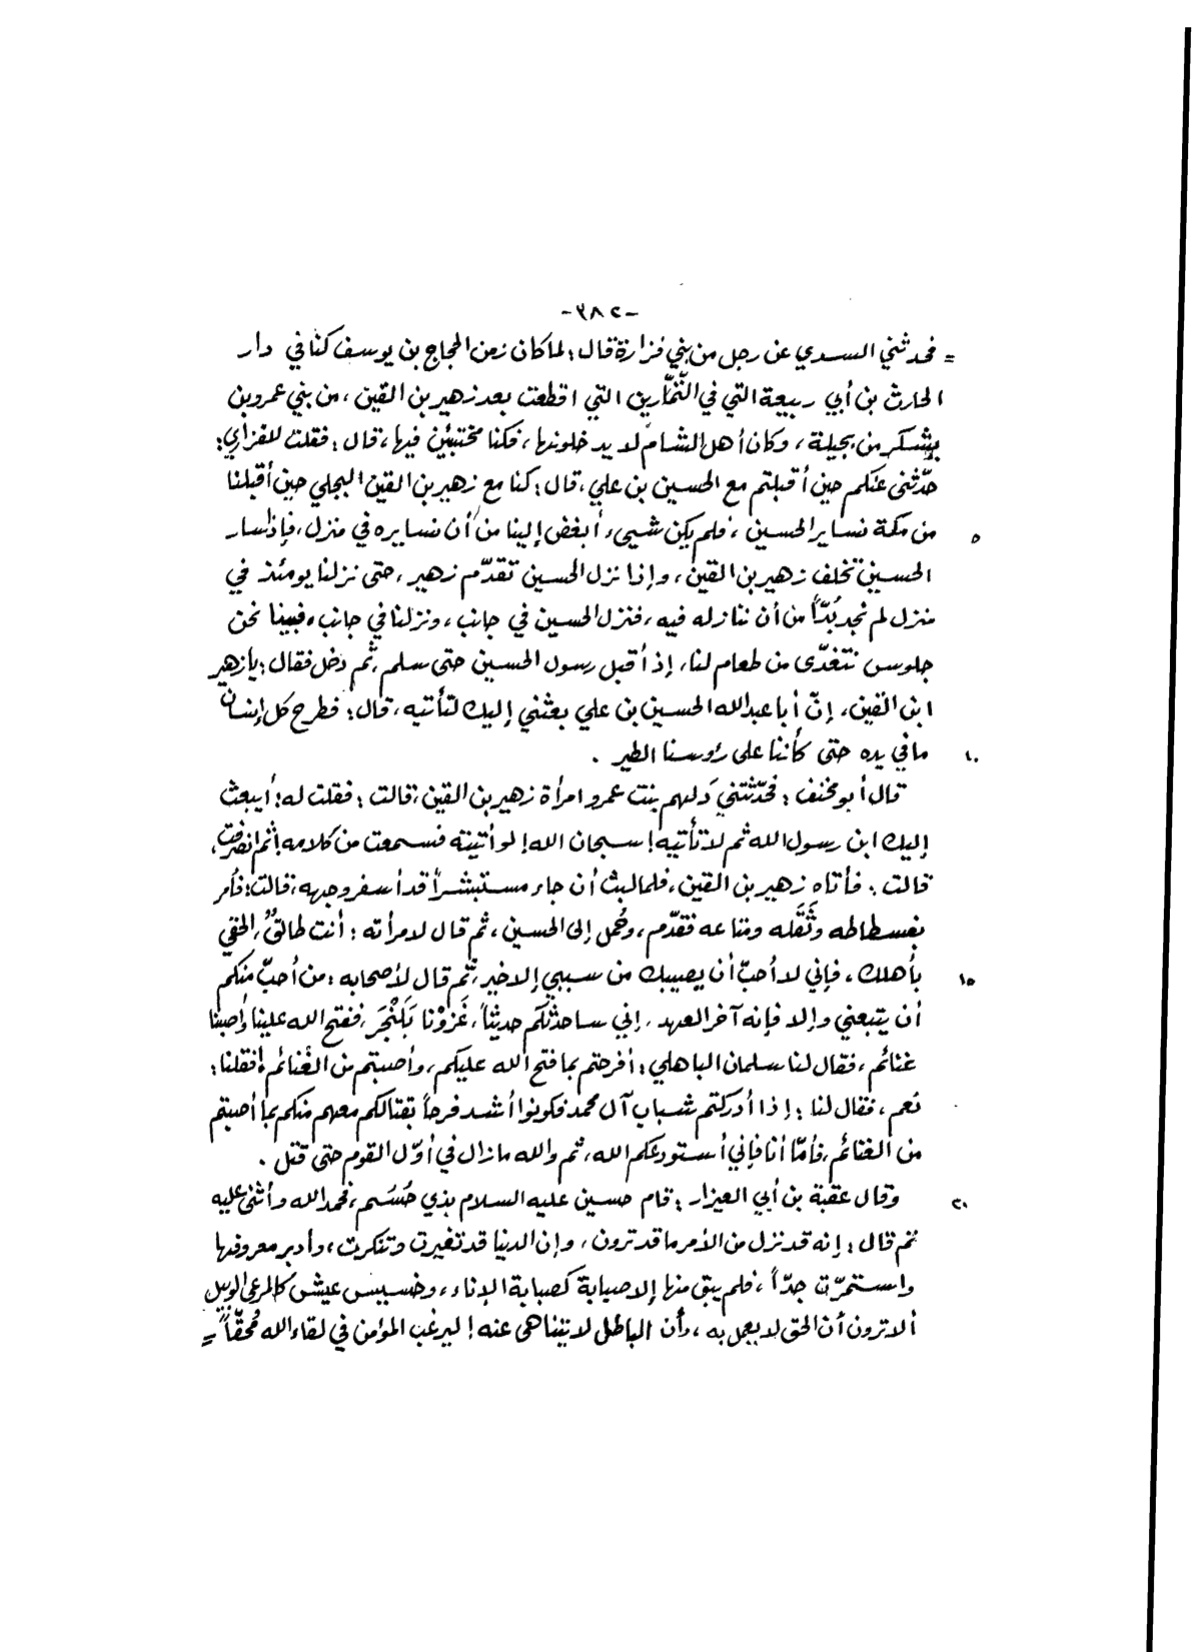 -٣٨٢-
= فحدثني السدي عن رجل من بني فزارة قال: لما كان زمن الحجاج بن يوسف كنا في دار
الحارث بن أبي ربيعة التي في التّمّارين التي اقطعت بعد زهير بن القين، من بني عمرو بن
يشكر من بجيلة، وكان أهل الشام لا يدخلونها، فكنا مختبئين فيها، قال: فقلت للفزاري:
حدّثني عنكم حين أقبلتم مع الحسين بن علي، قال: كنا مع زهير بن القين البجلي حين أقبلنا
٥ من مكة نساير الحسين، فلم يكن شيىء أبغض إلينا من أن نسايره في منزل، فإذا سار
الحسين تخلف زهير بن القين، وإذا نزل الحسين تقدّم زهير، حتى نزلنا يومئذ في
منزل لم نجد بُدّاً من أن ننازله فيه، فنزل الحسين في جانب، ونزلنا في جانب، فبينا نحن
جلوس نتغدّى من طعام لنا، إذ أقبل رسول الحسين حتى سلم، ثم دخل فقال: يا زهير
ابن القين، إنّ أبا عبد الله الحسين بن علي بعثني إليك لتأتيه، قال: فطرح كل إنسان
١٠ ما في يده حتى كأننا على رؤوسنا الطير.
قال أبو مخنف: فحدّثتني دَلهم بنت عمرو امرأة زهير بن القين، قالت: فقلت له: أيبعث
إليك ابن رسول الله ثم لا تأتيه! سبحان الله! لو أتيته فسمعت من كلامه! ثم انصرفت،
قالت: فأتاه زهير بن القين، فلما لبث أن جاء مستبشراً قد أسفر وجهه، قالت: فأمر
بفسطاطه وثَقَله ومتاعه فقدّم، وحُمل إلى الحسين، ثم قال لامرأته: أنت طالقٌ، الحقي
١٥ بأهلك، فإني لا أحبّ أن يصيبك من سببي إلا خير، ثم قال لأصحابه: من أحبّ منكم
أن يتبعني وإلا فإنه آخر العهد، إني ساحدّثكم حديثاً، غَزَوْنا بَلَنْجَرَ، ففتح الله علينا وأصبنا
غنائم، فقال لنا سلمان الباهلي: أفرحتم بما فتح الله عليكم، وأصبتم من الغنائم؟ فقلنا:
نعم، فقال لنا: إذا أدركتم شباب آل محمد فكونوا أشد فرحاً بقتالكم معهم منكم بما أصبتم
من الغنائم، فأمّا أنا فإني أستودعكم الله، ثم والله ما زال في أوّل القوم حتى قتل.
٢٠ وقال عقبة بن أبي العيزار: قام حسين عليه السلام بذي حُسُم، فحمد الله وأثنى عليه
ثم قال: إنه قد نزل من الأمر ما قد ترون، وإن الدنيا قد تغيرت وتنكرت، وأدبر معروفها
واستمرّت جدّاً، فلم يبق منها إلا صبابة كصبابة الإناء، وخسيس عيش كالمرعى الوبيل
ألا ترون أن الحق لا يعمل به، وأن الباطل لا يتناهى عنه! ليرغب المؤمن في لقاء الله مُحقّاً، =